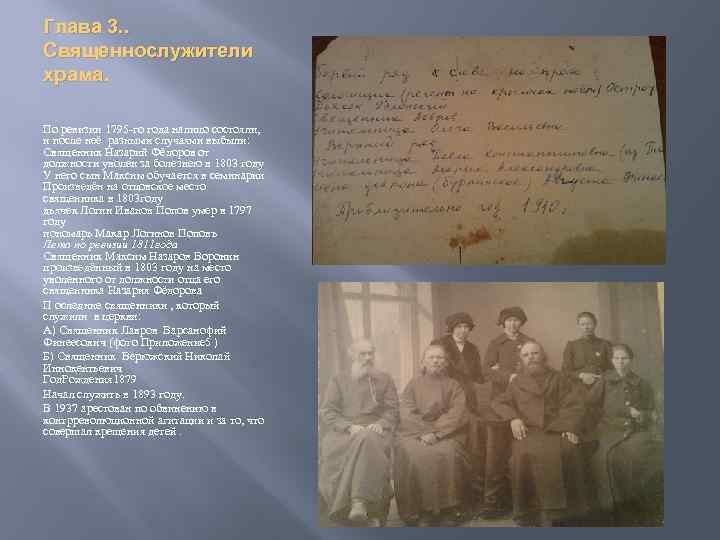 Глава 3. .
Священнослужители
храма.
По ревизии 1795-го года налицо состояли,
и после неё разными случаями выбыли:
Священник Назарий Фёдоров от
должности уволен за болезнею в 1803 году
У него сын Максим обучается в семинарии
Произведён на отцовское место
священника в 1803 году
дьячек Логин Иванов Попов умер в 1797
году
пономарь Макар Логинов Поповъ
Лета по ревизии 1811года
Священник Максим Назаров Воронин
произведённый в 1803 году на место
уволенного от должности отца его
священника Назария Фёдорова
П оследние священники , который
служили в церкви:
А) Священник Лавров Варсанофий
Финеесович (фото Приложение5 )
Б) Священник Верюжский Николай
Иннокентьевич
Год.Рождения1879
Начал служить в 1893 году.
В 1937 арестован по обвинению в
контрреволюционной агитации и за то, что
совершал крещения детей .
Первый ряд с слева направо
(
Священник Лавров
Учительница Ольга Васильевна
Верхний ряд
Учительница Павла Константиновна (из
Учительница Мария Александровна
Августа
Приблизительно год 1910.